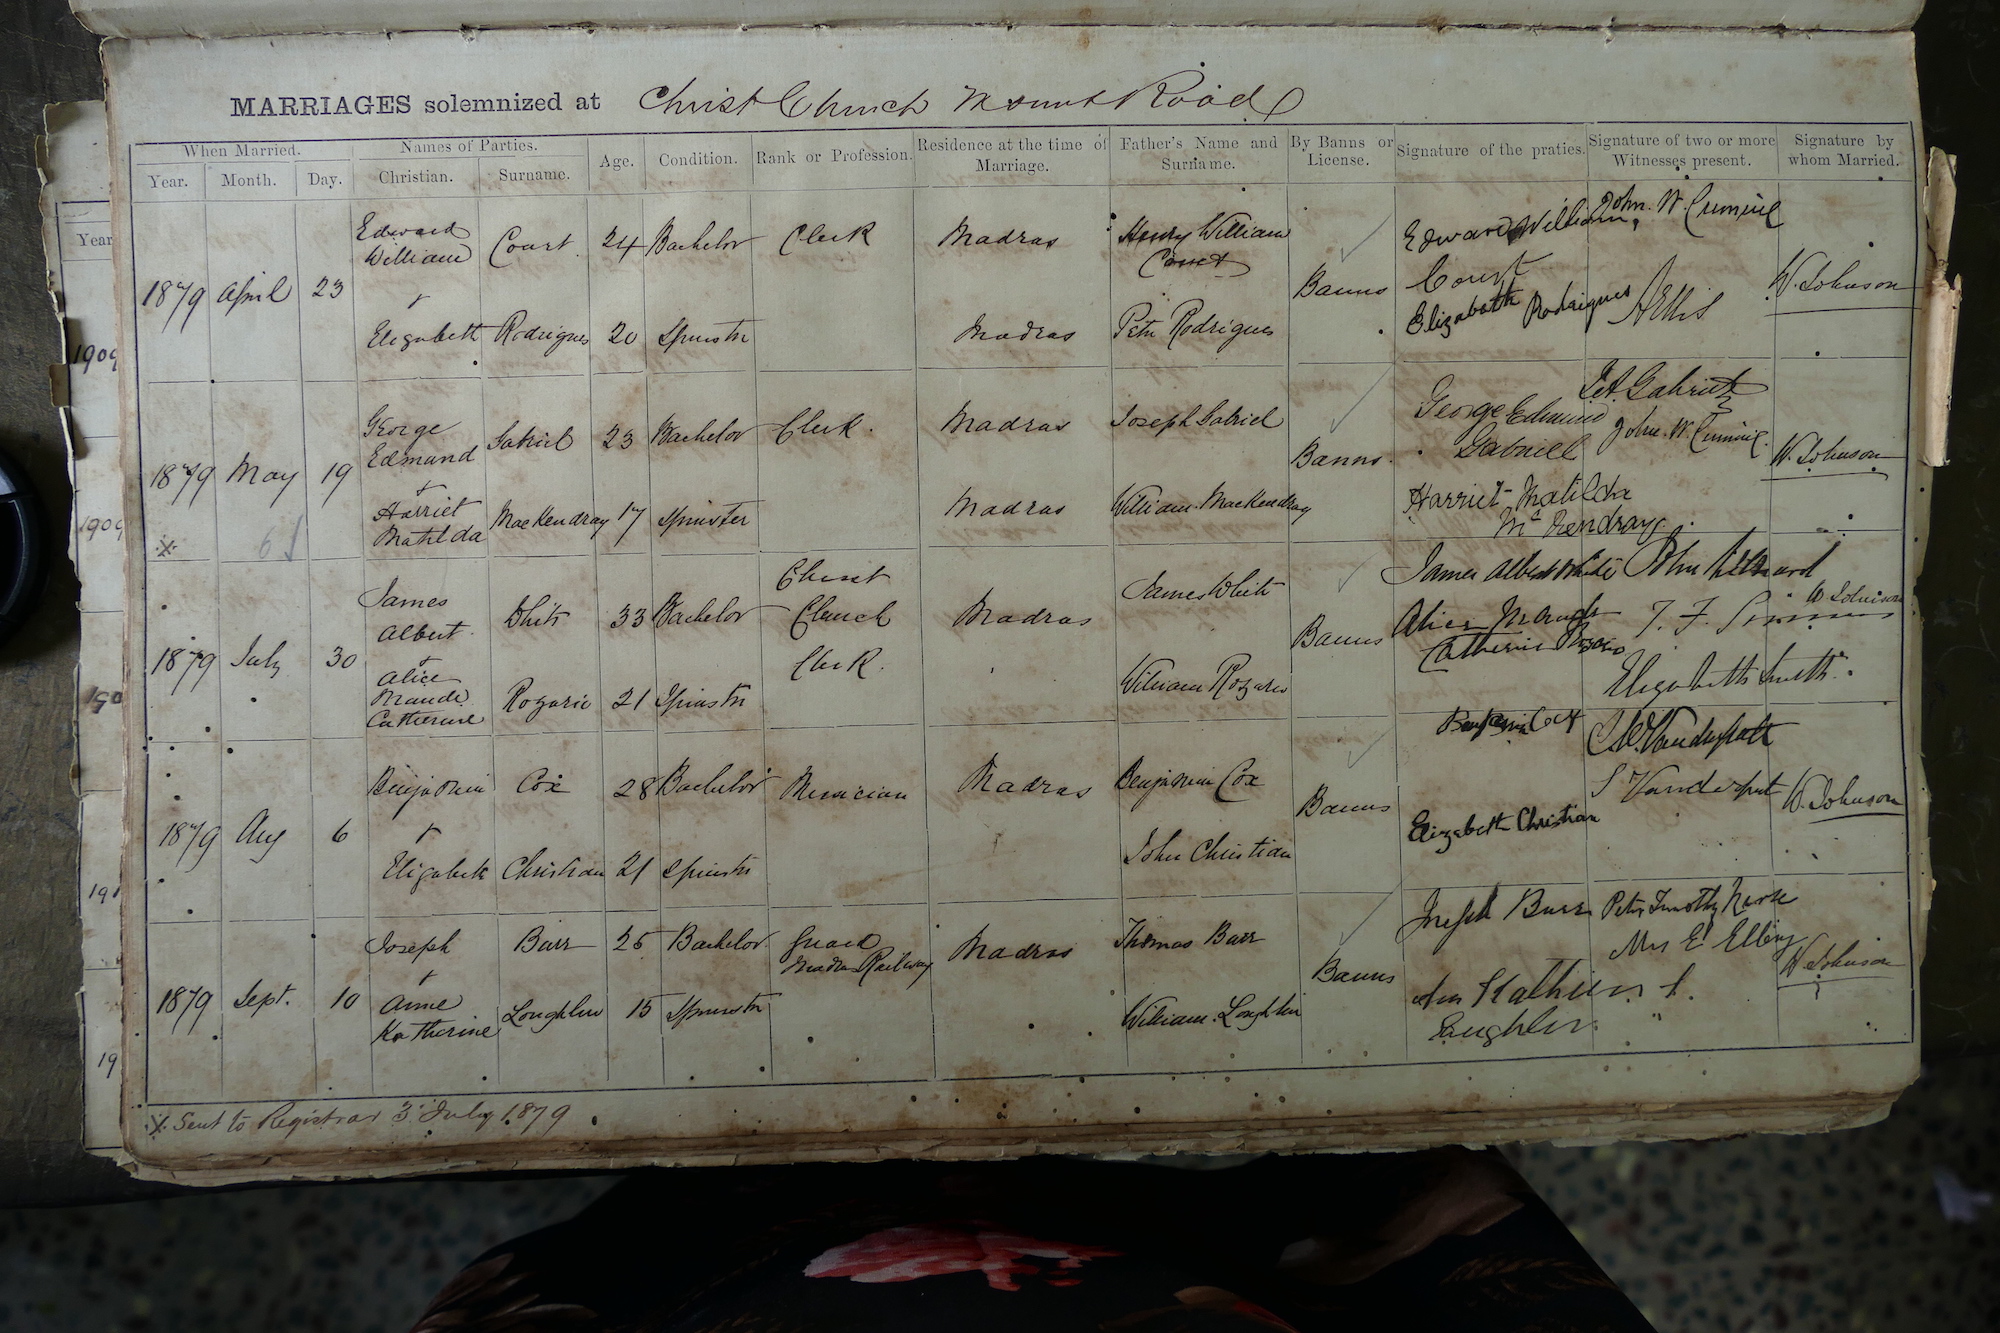 MARRIAGES solemnized at Christ Church Mount Road
When Married. Names of Parties. Age. Condition. Rank or Profession. Residence at the time of Marriage. Father's Name and Surname. By Banns or License. Signature of the praties. Signature of two or more Witnesses present. Signature by whom Married.
Year. Month. Day. Christian. Surname.
1879 April 23
Edward William Court 24 Bachelor Clerk Madras Henry William Court
+
Elizabeth Rodrigues 20 Spinster Madras Peter Rodrigues
Banns
Edward William Court
Elizabeth Rodrigues
John. W.
AEllis
W. Johnson
1879 May 19
George Edmund Gabriel 23 Bachelor Clerk. Madras Joseph Gabriel
+
Harriet Matilda MacKendray 17 Spinster Madras William MacKendray
Banns.
George Edmund Gabriell
Harriet Matilda McKendray
Gabriel
John. W.
W. Johnson
x 61
1879 July 30
James Albert White 33 Bachelor Christ Church Clerk. Madras James White
+
Alice Maude Catherine Rozario 21 Spinster William Rozario
Banns
James Albert White
Alice Maude Catherine Rozario
John
T. F.
Elizabeth Smith
W Johnson
1879 Aug 6
Benjamin Cox 28 Bachelor Musician Madras Benjamin Cox
+
Elizabeth Christian 21 Spinster John Christian
Banns
Benjamin Cox
Elizabeth Christian
Vanderputt
S Vanderput
W. Johnson
1879 Sept. 10
Joseph Burr 25 Bachelor Guard Madras Railway Madras Thomas Burr
+
Anne Katherine Loughlin 15 Spinster William. Loughlin
Banns
Joseph Burr
Ann Katherin
Laughlin
Peter Timothy
Mrs E
W Johnson
x. Sent to Registrar 3 July 1879
Year
1909
1909
190
191
19